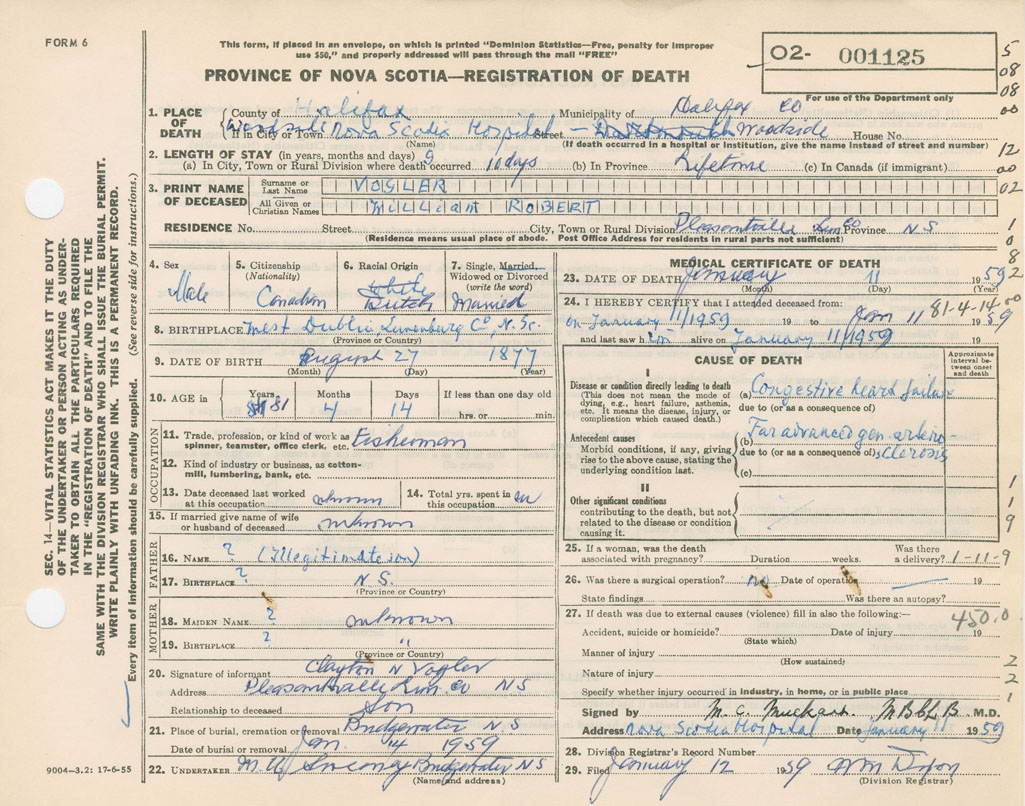 FORM 6
This form, if placed in an envelope, on which is printed "Dominion Statistics—Free, penalty for improper
use $50," and properly addressed will pass through the mail "FREE"
PROVINCE OF NOVA SCOTIA—REGISTRATION OF DEATH
O2- 001125
For use of the Department only
5
08
08
00
12
00
02
1
0
8
2
1. PLACE OF DEATH
County of Halifax Municipality of Halifax Co
If in City or Town Nova Scotia Hospital Street Dartmouth Woodside House No.
(Name) (If death occurred in a hospital or institution, give the name instead of street and number)
2. LENGTH OF STAY (in years, months and days) 9
(a) In City, Town or Rural Division where death occurred 10 days (b) In Province Lifetime (c) In Canada (if immigrant)
3. PRINT NAME OF DECEASED
Surname or Last Name VOGLER
All Given or Christian Names William ROBERT
RESIDENCE No. Street City, Town or Rural Division Pleasantville Lun Co Province N S
(Residence means usual place of abode. Post Office Address for residents in rural parts not sufficient)
4. Sex Male
5. Citizenship (Nationality) Canadian
6. Racial Origin White Dutch
7. Single, Married, Widowed or Divorced (write the word) Married
8. BIRTHPLACE West Dublin Lunenburg Co, N. Sc.
(Province or Country)
9. DATE OF BIRTH August 27 1877
(Month) (Day) (Year)
10. AGE in Years 81 Months 4 Days 14 If less than one day old hrs. or min.
OCCUPATION
11. Trade, profession, or kind of work as spinner, teamster, office clerk, etc. Fisherman
12. Kind of industry or business, as cotton-mill, lumbering, bank, etc.
13. Date deceased last worked at this occupation unknown
14. Total yrs. spent in this occupation
15. If married give name of wife or husband of deceased unknown
FATHER
16. NAME ? (Illegitimate son)
17. BIRTHPLACE ? N S.
(Province or Country)
MOTHER
18. MAIDEN NAME ? unknown
19. BIRTHPLACE ? "
(Province or Country)
20. Signature of informant Clayton N Vogler
Address Pleasantville Lun Co N S
Relationship to deceased Son
21. Place of burial, cremation or removal Bridgewater N S
Date of burial or removal Jan. 14 1959
22. UNDERTAKER Bridgewater N S
(Name and address)
MEDICAL CERTIFICATE OF DEATH
23. DATE OF DEATH January 11 1959
(Month) (Day) (Year)
24. I HEREBY CERTIFY that I attended deceased from: 81-4-14.00
on January 11/1959 19 to Jan 11 1959
and last saw him alive on January 11/1959 19
CAUSE OF DEATH
Approximate interval between onset and death
I
Disease or condition directly leading to death
(This does not mean the mode of dying, e.g., heart failure, asthenia, etc. It means the disease, injury, or complication which caused death.)
(a) Congestive heart failure
due to (or as a consequence of)
Antecedent causes
Morbid conditions, if any, giving rise to the above cause, stating the underlying condition last.
(b) Far advanced gen. arterio-
due to (or as a consequence of) sclerosis
(c)
II
Other significant conditions
contributing to the death, but not related to the disease or condition causing it.
1
1
9
25. If a woman, was the death associated with pregnancy? Duration weeks. Was there a delivery? 1-11-9
26. Was there a surgical operation? no Date of operation 19
State findings Was there an autopsy?
27. If death was due to external causes (violence) fill in also the following:— 450.0
Accident, suicide or homicide? Date of injury 19
(State which)
Manner of injury
(How sustained)
Nature of injury
2
2
1
Specify whether injury occurred in industry, in home, or in public place
Signed by M. C. M B Ch B M.D.
Address Nova Scotia Hospital Date January 11 1959
28. Division Registrar's Record Number
29. Filed January 12 1959
(Division Registrar)
SEC. 14—VITAL STATISTICS ACT MAKES IT THE DUTY
OF THE UNDERTAKER OR PERSON ACTING AS UNDER-
TAKER TO OBTAIN ALL THE PARTICULARS REQUIRED
IN THE "REGISTRATION OF DEATH" AND TO FILE THE
SAME WITH THE DIVISION REGISTRAR WHO SHALL ISSUE THE BURIAL PERMIT.
WRITE PLAINLY WITH UNFADING INK. THIS IS A PERMANENT RECORD.
Every item of information should be carefully supplied. (See reverse side for instructions.)
9004-3.2: 17-6-55